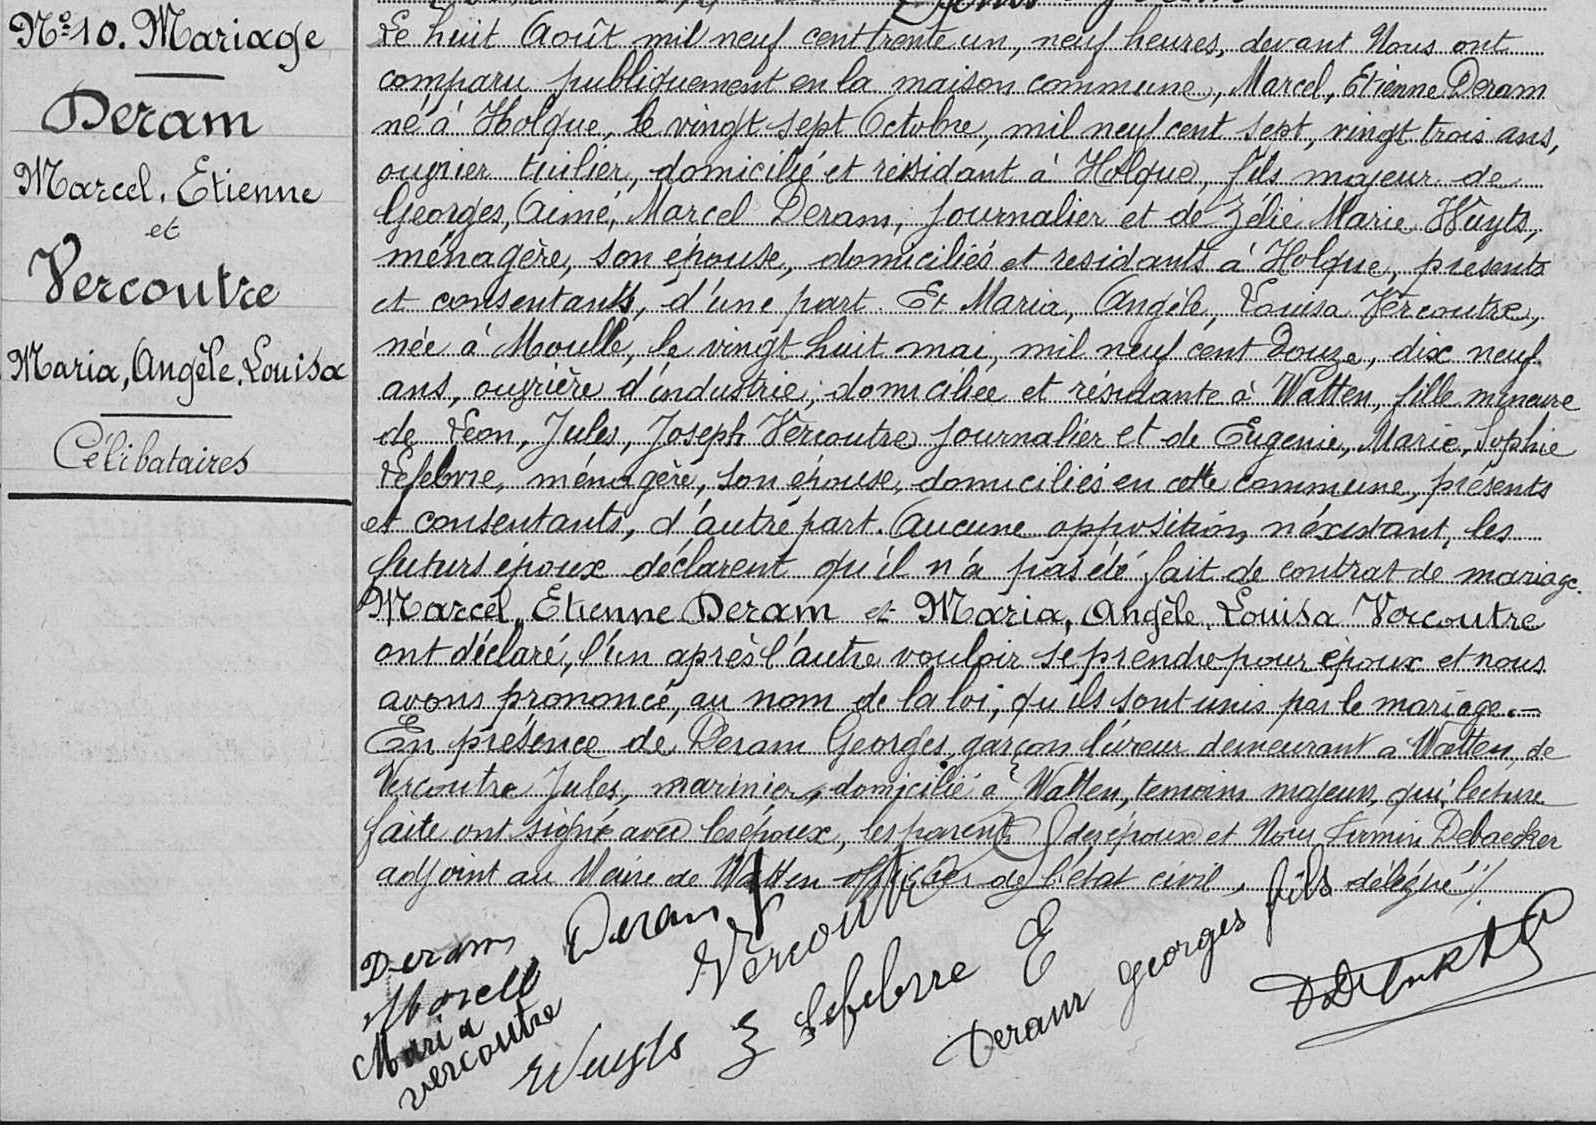 N° 10. Mariage
Deram
Marcel, Etienne
et
Vercoutre
Maria, Angèle, Louisa
Célibataires
Le huit Août mil neuf cent trente un, neuf heures, devant Nous ont
comparu publiquement en la maison commune, Marcel, Etienne Deram
né à Holque, le vingt sept Octobre, mil neuf cent sept, vingt trois ans,
ouvrier tuilier, domicilié et résidant à Holque, fils majeur de
Georges, Aimé, Marcel Deram, journalier et de Zélie Marie Wuyts,
ménagère, son épouse, domiciliés et residants à Holque, présents
et consentants, d'une part. Et Maria, Angèle, Louisa Vercoutre,
née à Moulle, le vingt huit mai, mil neuf cent douze, dix neuf
ans, ouvrière d'industrie, domiciliée et résidante à Watten, fille mineure
de Léon, Jules, Joseph Vercoutre journalier et de Eugenie, Marie, Sophie
Lefebvre, ménagère, son épouse, domiciliés en cette commune, présents
et consentants, d'autre part. Aucune opposition n'éxistant, les
futurs époux déclarent qu'il n'a pas été fait de contrat de mariage.
Marcel, Etienne Deram et Maria, Angèle, Louisa Vercoutre
ont déclaré, l'un après l'autre vouloir se prendre pour époux et nous
avons prononcé, au nom de la loi, qu'ils sont unis par le mariage.—
En présence de Deram Georges, garçon livreur demeurant a Watten, de
Vercoutre Jules, marinier, domicilié à Watten, temoins majeurs, qui, lecture
faite ont signé avec les époux, les parents des époux et Nous Firmin Debaecker
adjoint au Maire de Watten officier de l'état civil, délégué ./.
Deram Deram
Marcel Vercoutre
Maria
vercoutre
Wuyts Z Lefebvre E
Deram georges fils